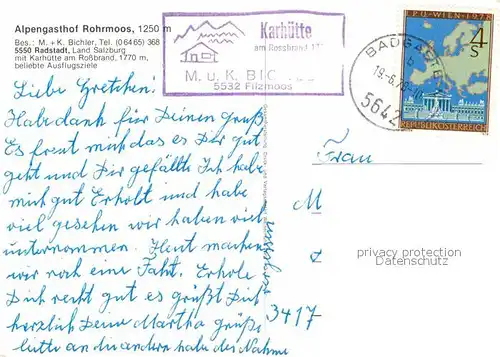 Alpengasthof Rohrmoos, 1250 m
Bes.: M. + K. Bichler, Tel. (0 64 65) 368
5550 Radstadt, Land Salzburg
mit Karhütte am Roßbrand, 1770 m,
beliebte Ausflugsziele
Karhütte
am Rossbrand
M. u. K. BIC
5532 Filzmoos
BADGASTEIN
b
19.-6.78-
5640
I.P.U.-WIEN, 1978
4
S
REPUBLIK ÖSTERREICH
Liebe Gretchen!
Hab dank für Deinen Gruß
Es freut mich das es Dir gut
geht und Dir gefällts Ich habe
mich gut Erholt und habe
viel gesehen wir haben viel
unternommen. Heut machen
wir noch eine Faht. Erhole
Dich recht gut es grüßt Dich
herzlich Deine Martha grüße
bitte an die andern habe des Nahme
Frau
M
3417
privacy protection
Datenschutz